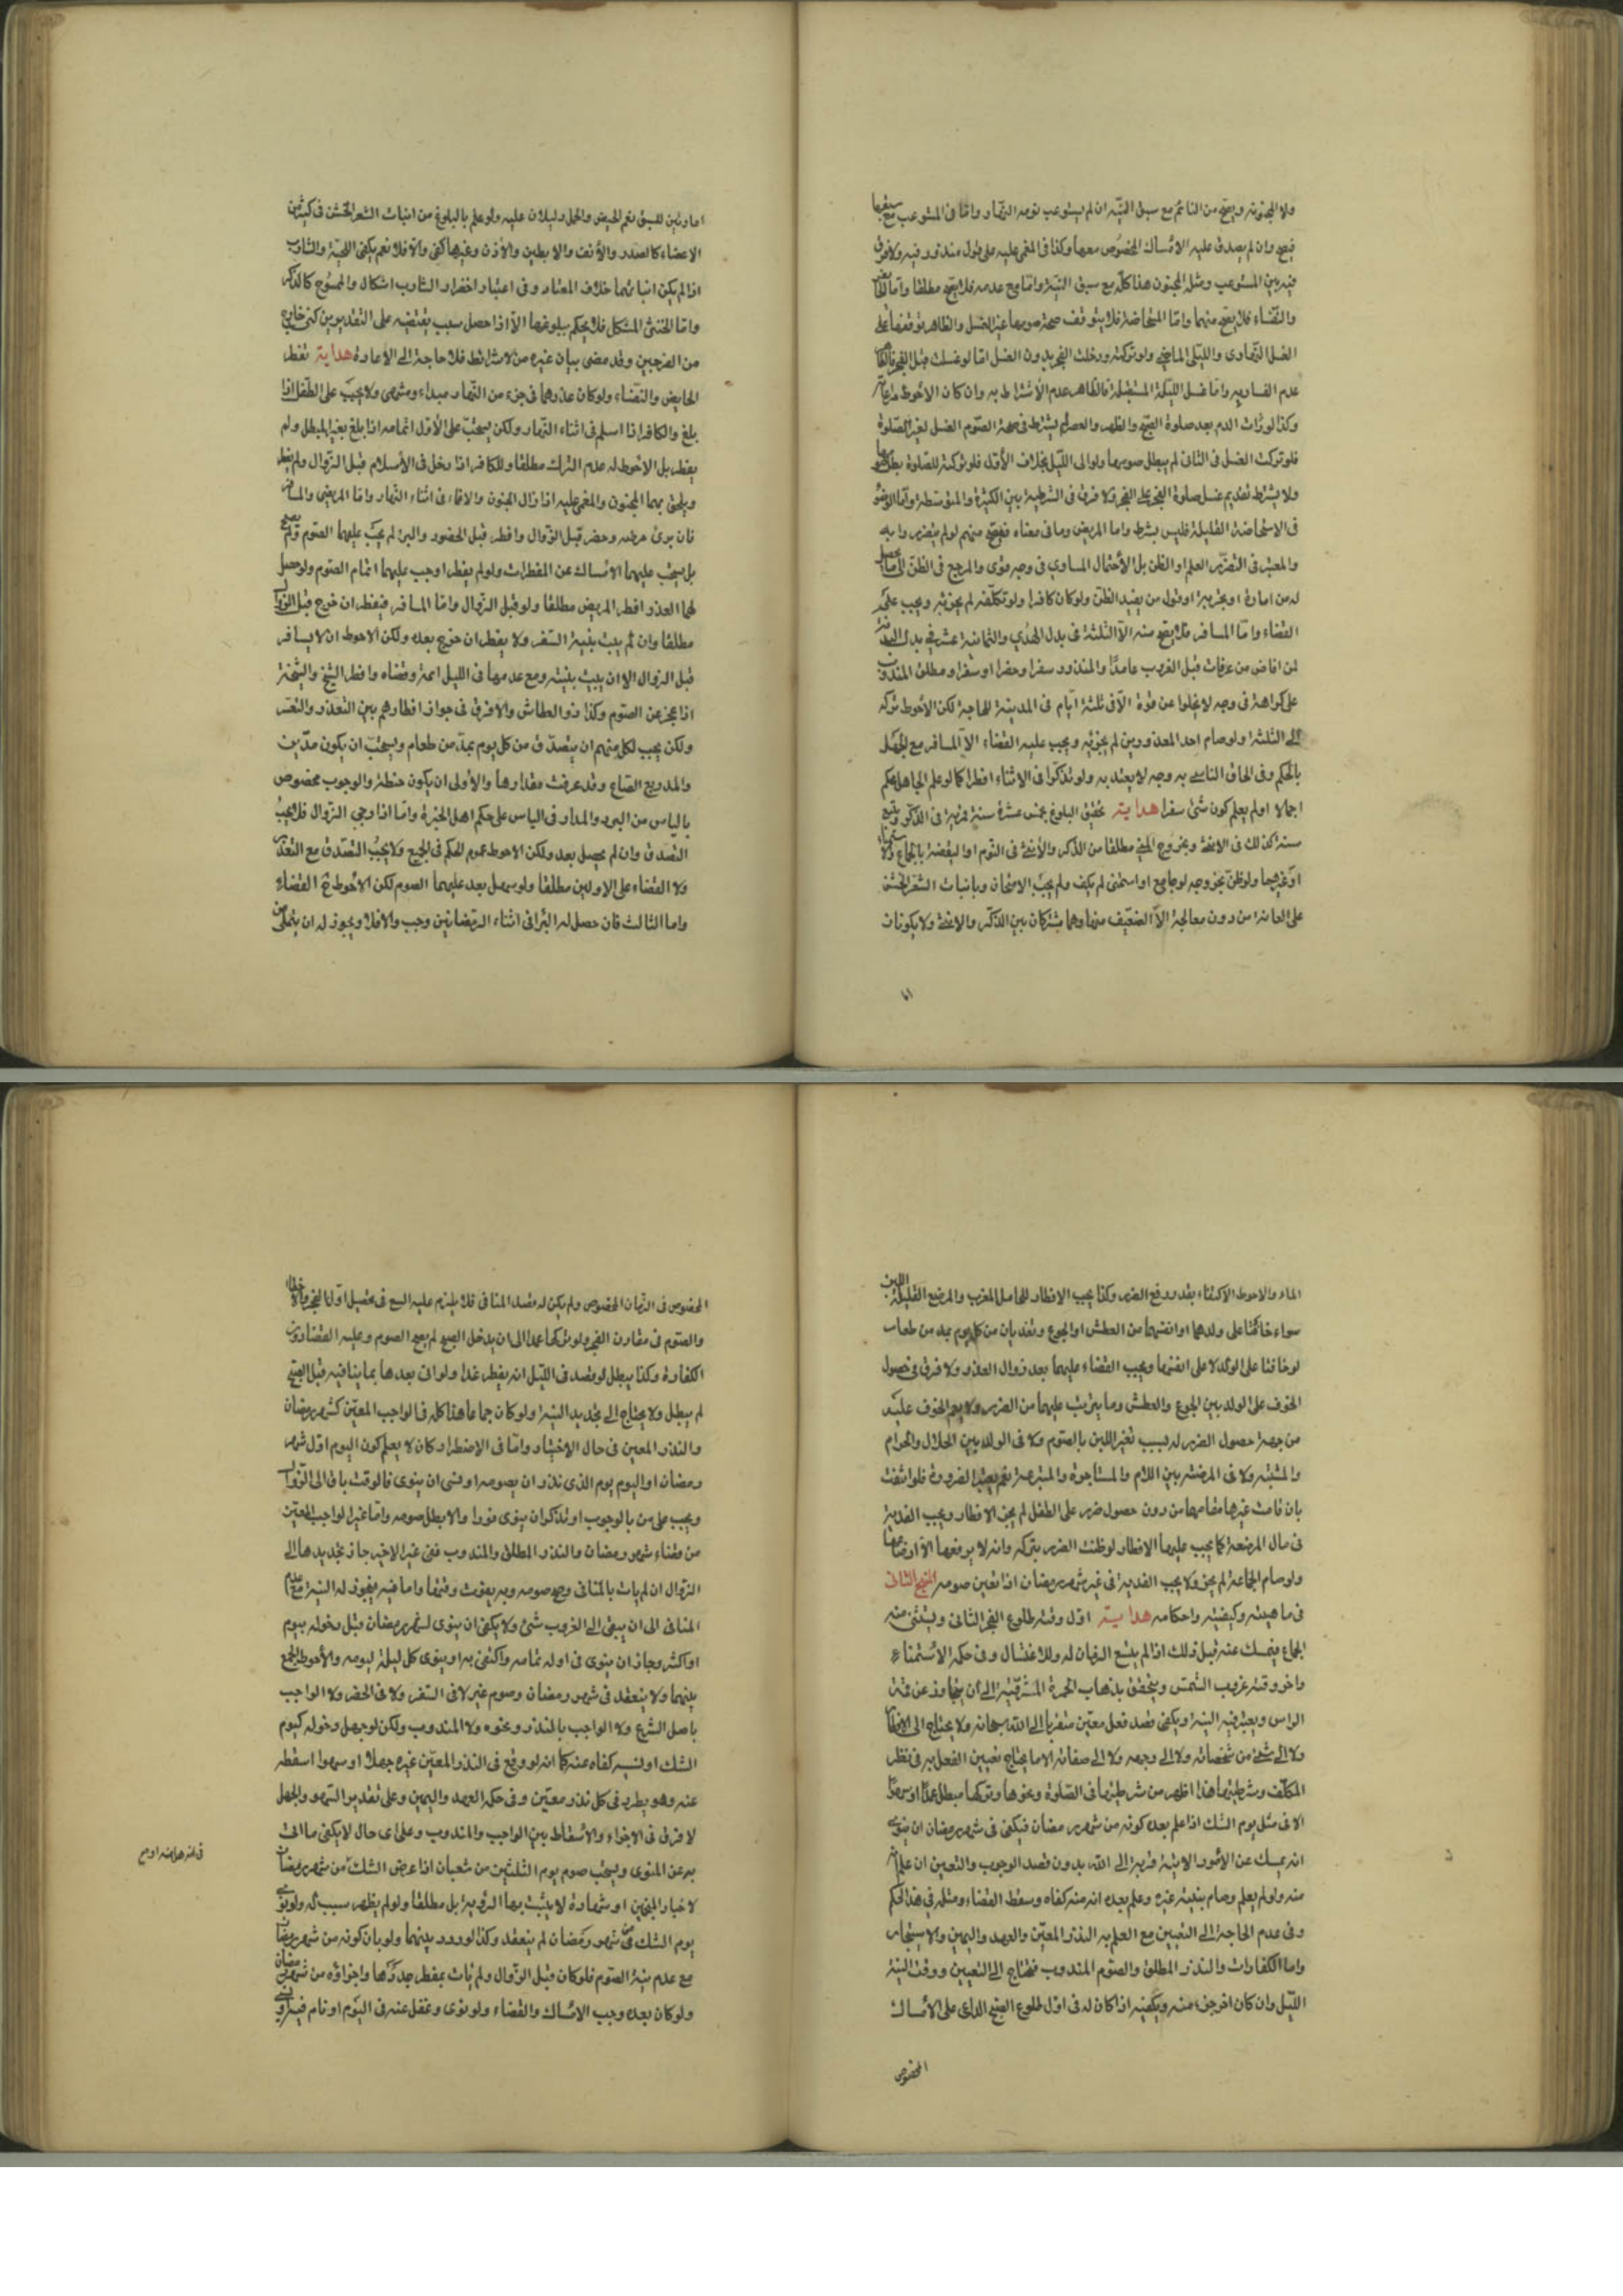 ولا المجنونة ويصح من النائم مع سبق النية ان لم يستوعب نومه النهار واما في المستوعب مع سبقها
فيصح وان لم يصدق عليه الامساك المخصوص معها وكذا في المغمى عليه على قول مندور فيه ولا فرق
فيه بين المستوعب ومثله المجنون هذا كله مع سبق النية واما مع عدمه فلا يصح مطلقا واما الحائض
والنفساء فلا يصح منهما واما المستحاضة فلا يتوقف صحة صومها على غير الغسل والظاهر توقفها على
الغسل النهارى والليلى الماضي ولو تركته ودخلت الفجر بدون الغسل اما لو غسلت قبل الفجر
عدم الفساد به واما غسل الليلة المستقبلة فالظاهر عدم الاشتراط به وان كان الاحوط مراعاته
وكذا لو رأت الدم بعد صلوة الصبح والظهر والعصر لم يشترط في صحة الصوم الغسل لغير الصلوة
فلو تركت الغسل في الثانى لم يبطل صومها ولو الى الليل بخلاف الأول فلو تركته للصلوة بطل صومها
ولا يشترط تقديم غسل صلوة الفجر على الفجر ولا فرق في الشرطية بين الكثيرة والمتوسطة واما الوضوء
في الاستحاضة القليلة فليس بشرط واما المريض وما في معناه فيصح منهم لو لم يتضرروا به
والمعتبر في التضرر العلم او الظن بل الأحتمال المساوي في وجه قوى والمرجع في الظن الى ما يحصل
له من امارة او تجربة او قول من يفيد الظن ولو كان كافرا ولو تكلفه لم يجزئه ويجب عليه
القضاء واما المسافر فلا يصح منه الا الثلثة في بدل الهدي والثمانية عشر في بدل البدنة
لمن افاض من عرفات قبل الغروب عامدًا والمنذور سفرا وحضرا او سفرا ومطلق المندوب
على كراهة في وجه لا يخلوا عن قوة الا في ثلثة ايام في المدينة للحاجة لكن الأحوط تركه
الى الثلثة ولو صام احد المعذورين لم يجزئه ويجب عليه القضاء الا المسافر مع الجهل
بالحكم وفي الحاق الناسي به وجه لا يعتد به ولو تذكروا في الاثناء افطرا كما لو علم الجاهل بالحكم
اجمالا او لم يعلم كون شئ سفرا هداية تحقق البلوغ بخمس عشرة سنة قمرية في الذكر وبتسع
سنة كذلك في الانثى وبخروج المني مطلقا من الذكر والأنثى في النوم او اليقضة بالجماع
او غيرهما ولو ظن بخروجه لو جامع او استمنى لم يكف ولم يجب الامتحان وبانبات الشعر الخشن
على العانة من دون معالجة الا الضعيف منها وهما مشتركان بين الذكر والانثى ولا يكونان
اما
امارتين للسبق نعم الحيض والحمل دليلان عليه ولو علم بالبلوغ من انبات الشعر الخشن في كثير من
الاعضاء كالصدر والأنف والابطين والأذن وغيرها كفى والا فلا نعم يكفي اللحية والشارب
اذا لم يكن انباتهما خلاف المعتاد وفي اعتبار اخضرار الشارب اشكال والممسوح كالذكر
واما الخنثى المشكل فلا يحكم ببلوغها الا اذا حصل سبب يقتضيه على التقديرين كمني خارج
من الفرجين وقد مضى بيان غيره من الاشرائط فلا حاجة الى الاعادة هداية تفطر
الحايض والنفساء ولو كان عذرهما في جزء من النهار مبداء ومنتهى ولا يجب على الطفل اذا
بلغ والكافر اذا اسلم في اثناء النهار ولكن يستحب على الأول اتمامه اذا بلغ بغير المبطل ولم
يفطر بل الاحوط له عدم الترك مطلقا وللكافر اذا دخل في الأسلام قبل الزوال ولم يفطر
ويلحق بهما المجنون والمغمى عليه اذا زال الجنون والاغماء في اثناء النهار واما المريض والمسافر
فان برئ مرضه وحضر قبل الزوال وافطر قبل الحضور والبرء لم يجب عليهما الصوم ولم يصح
بل يستحب عليهما الامساك عن المفطرات ولو لم يفطرا وجب عليهما اتمام الصوم ولو حصل
لهما العذر افطر المريض مطلقا ولو قبل الزوال واما المسافر فيفطر ان خرج قبل الزوال
مطلقا وان لم يبت بنية السفر ولا يفطر ان خرج بعده ولكن الاحوط ان لا يسافر
قبل الزوال الا ان يبيت بنيته ومع عدمها في الليل اتمه وقضاه وافطر الشيخ والشيخة
اذا عجز عن الصوم وكذا ذو العطاش والا فرق في جواز افطارهم بين التعذر والتعسر
ولكن يجب لكل منهم ان يتصدق من كل يوم بمد من طعام ويستحب ان يكون مدين
والمد ربع الصاع وقد عرفت مقدارها والأولى ان يكون حنطة والوجوب مخصوص
بالياس من البرء والمدار في الياس على حكم اهل الخبرة واما اذا رجى الزوال فلا يجب
التصدق وان لم يحصل بعد ولكن الاحوط عموم الحكم في الجميع ولا يجب التصدق مع التعذر
ولا القضاء على الاولين مطلقا ولو سهل بعد عليهما الصوم لكن الاحوط القضاء
واما الثالث فان حصل له البرء في اثناء الرمضانين وجب والا فلا ويجوز له ان يتملى من
الماء والاحوط الاكتفاء بقدر دفع الضرر وكذا يجب الافطار للحامل المقرب والمرضع القليلة اللبن
سواء خافتا على ولدهما او انفسهما من العطش او الجوع وتفديان من كل يوم بمد من طعام
لو خافتا على الولد لا على انفسهما ويجب القضاء عليهما بعد زوال العذر ولا فرق في حصول
الخوف على الولد بين الجوع والعطش وما يترتب عليهما من الضرر ولا يعم الخوف عليه
من جهة حصول الضرر له بسبب تغير اللبن بالصوم ولا في الولد بين الحلال والحرام
والمشتبه ولا في المرضعة بين اللام والمستاجرة والمتبرعة نعم يعتبر الضرورة فلو انتفت
بان قامت غيرها مقامها من دون حصول ضرر على الطفل لم يجز الافطار ويجب الفدية
في مال المرضعة كما يجب عليها الافطار لو ظنت الضرر بتركه وانه لا يرفعها الا ارضاعها
ولو صام الجماعة لم يجز ولا يجب الفدية في غير شهر رمضان اذا تعين صومه المنهج الثاني
في ماهيته وكيفيته واحكامه هداية اول وقته طلوع الفجر الثانى ويستثنى منه
الجماع فيمسك عنه قبل ذلك اذا لم يتسع الزمان له وللاغتسال وفي حكمه الاستمناء
واخر وقته غروب الشمس ويتحقق بذهاب الحمرة المشرقية الى ان يتجاوز عن قمة
الراس ويعتبر فيه النية ويكفي قصد فعل معين متقربا الى الله سبحانه ولا يحتاج الى الاخطار
ولا الى شئ من مشخصاته ولا الى وجهه ولا الى صفاته الا ما يحتاج تعيين الفعل به في نظر
المكلف وشرطيتها هنا اظهر من شرطيتها في الصلوة ونحوها وتركها مبطل عمدًا او سهوًا
الا في مثل يوم الشك اذا علم بعده كونه من شهر رمضان فيكفي في شهر رمضان ان ينوى
انه يمسك عن الأمور الاتية قربة الى الله بدون قصد الوجوب والتعيين ان علم انه
منه ولو لم يعلم وصام بنية غيره وعلم بعده انه منه كفاه وسقط القضاء ومثله في هذا الحكم
وفي عدم الحاجة الى التعيين مع العلم به النذر المعين والعهد واليمين والاستيجار
واما الكفارات والنذر المطلق والصوم المندوب فيحتاج الى التعيين ووقت النية
الليل وان كان اخر جزء منه ويكفيه اذا كان له في اول طلوع الصبح الداعي على الامساك
المخصوص
المخصوص في الزمان المخصوص ولم يكن له قصد المنافي فلا يلزم عليه السعي في تحصيل اول الفجر والاخطار
والصوم في مقارن الفجر ولو تركها عمدا الى ان يدخل الصبح لم يصح الصوم وعليه القضاء دون
الكفارة وكذا يبطل لو قصد في الليل انه يفطر غدا ولو اتى بعدها بما ينافيه قبل الصبح
لم يبطل ولا يحتاج الى تجديد النية ولو كان جماعا هذا كله في الواجب المعين كشهر رمضان
والنذر المعين في حال الاختيار واما في الاضطرار وكان لا يعلم كون اليوم اول شهر
رمضان او اليوم يوم الذى نذر ان يصومه او نسى ان ينوى فالوقت باق الى الزوال
ويجب على من بالوجوب او تذكر ان ينوى فورا والا بطل صومه واما غير الواجب المعين
من قضاء شهر رمضان والنذر المطلق والمندوب ففي غير الاخير جاز تجديدها الى
الزوال ان لم يات بالمنافي وصح صومه وبه يفوت وقتها واما فيه فيجوز له النية مع عدم
المنافي الى ان يبقى الى الغروب شئ ولا يكفي ان ينوى لشهر رمضان قبل دخوله بيوم
او اكثر وجاز ان ينوى في اوله تمامه واكتفى به او ينوى كل ليلة ليومه والأحوط الجمع
بينهما ولا ينعقد في شهر رمضان وصوم غيره لا في السفر ولا في الحضر ولا الواجب
باصل الشرع ولا الواجب بالنذر ونحوه ولا المندوب ولكن لو جهل دخوله كيوم
الشك او نسيه كفاه عنه كما انه لو وقع في النذر المعين غيره جهلا او سهوا اسقطه
عنه وهو يطرد في كل نذر معين وفي حكمه العهد واليمين وعلى تقدير السهو والجهل
لا فرق في الاجزاء والأسقاط بين الواجب والمندوب وعلى اى حال لا يكفى ما اتى
به عن المنوى ويستحب صوم يوم الثلثين من شعبان اذا عرض الشك من شهر رمضان
لاخبار المخبرين او شهادة لا يثبت بها الرؤية بل مطلقا ولو لم يظهر سبب له ولو نوى
يوم الشك من شهر رمضان لم ينعقد وكذا لو ردد بينهما ولو بان كونه من شهر رمضان
مع عدم نية الصوم فلو كان قبل الزوال ولم يات بمفطر جددها واجزاؤه من شهر رمضان
ولو كان بعده وجب الامساك والقضاء ولو نوى وغفل عنه في اليوم او نام فيه او نسي